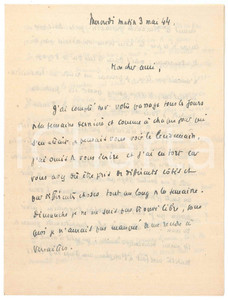 Mercredi matin 3 mai 44.
Mon cher ami,
J'ai compté sur votre passage tous les jours
de la semaine dernière et comme à chaque jour qui
j'ai omis de vous écrire et j'ai eu tort car
vous avez dû être pris de différents côtés et
par différentes choses tout au long de la semaine.
Dimanche je ne me suis pas trouvé libre, sans
quoi je n'aurais pas manqué de me rendre à
Versailles.